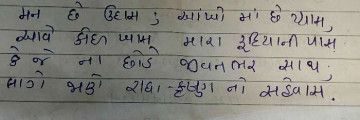 મન છે ઉદાસ ; આંખો માં છે પ્યાસ,
આવે કોઇ ખાસ મારા રૂદિયાની પાસ
કે જે ના છોડે જીવનભર સાથ;
લાગે જાણે રાધા-કૃષ્ણ નો સહેવાસ.